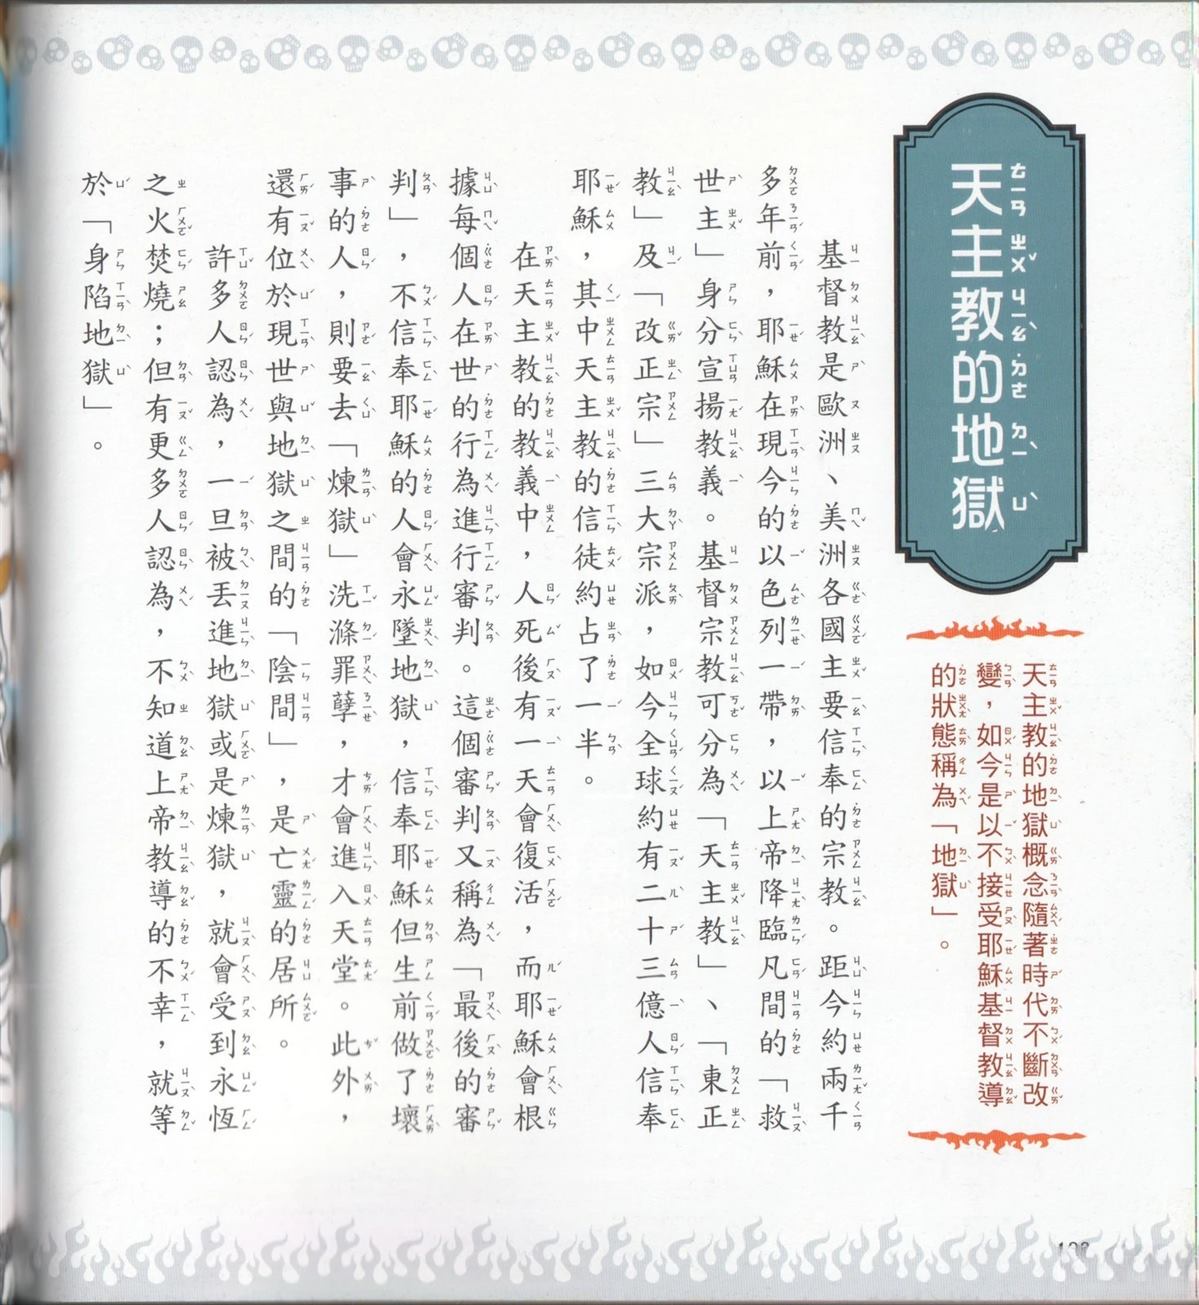 天主教的地獄
天主教的地獄概念隨著時代不斷改
變，如今是以不接受耶穌基督教導
的狀態稱為「地獄」。
基督教是歐洲、美洲各國主要信奉的宗教。距今約兩千
多年前，耶穌在現今的以色列一帶，以上帝降臨凡間的「救
世主」身分宣揚教義。基督宗教可分為「天主教」、「東正
教」及「改正宗」三大宗派，如今全球約有二十三億人信奉
耶穌，其中天主教的信徒約占了一半。
在天主教的教義中，人死後有一天會復活，而耶穌會根
據每個人在世的行為進行審判。這個審判又稱為「最後的審
判」，不信奉耶穌的人會永墜地獄，信奉耶穌但生前做了壞
事的人，則要去「煉獄」洗滌罪孽，才會進入天堂。此外，
還有位於現世與地獄之間的「陰間」，是亡靈的居所。
許多人認為，一旦被丟進地獄或是煉獄，就會受到永恆
之火焚燒；但有更多人認為，不知道上帝教導的不幸，就等
於「身陷地獄」。